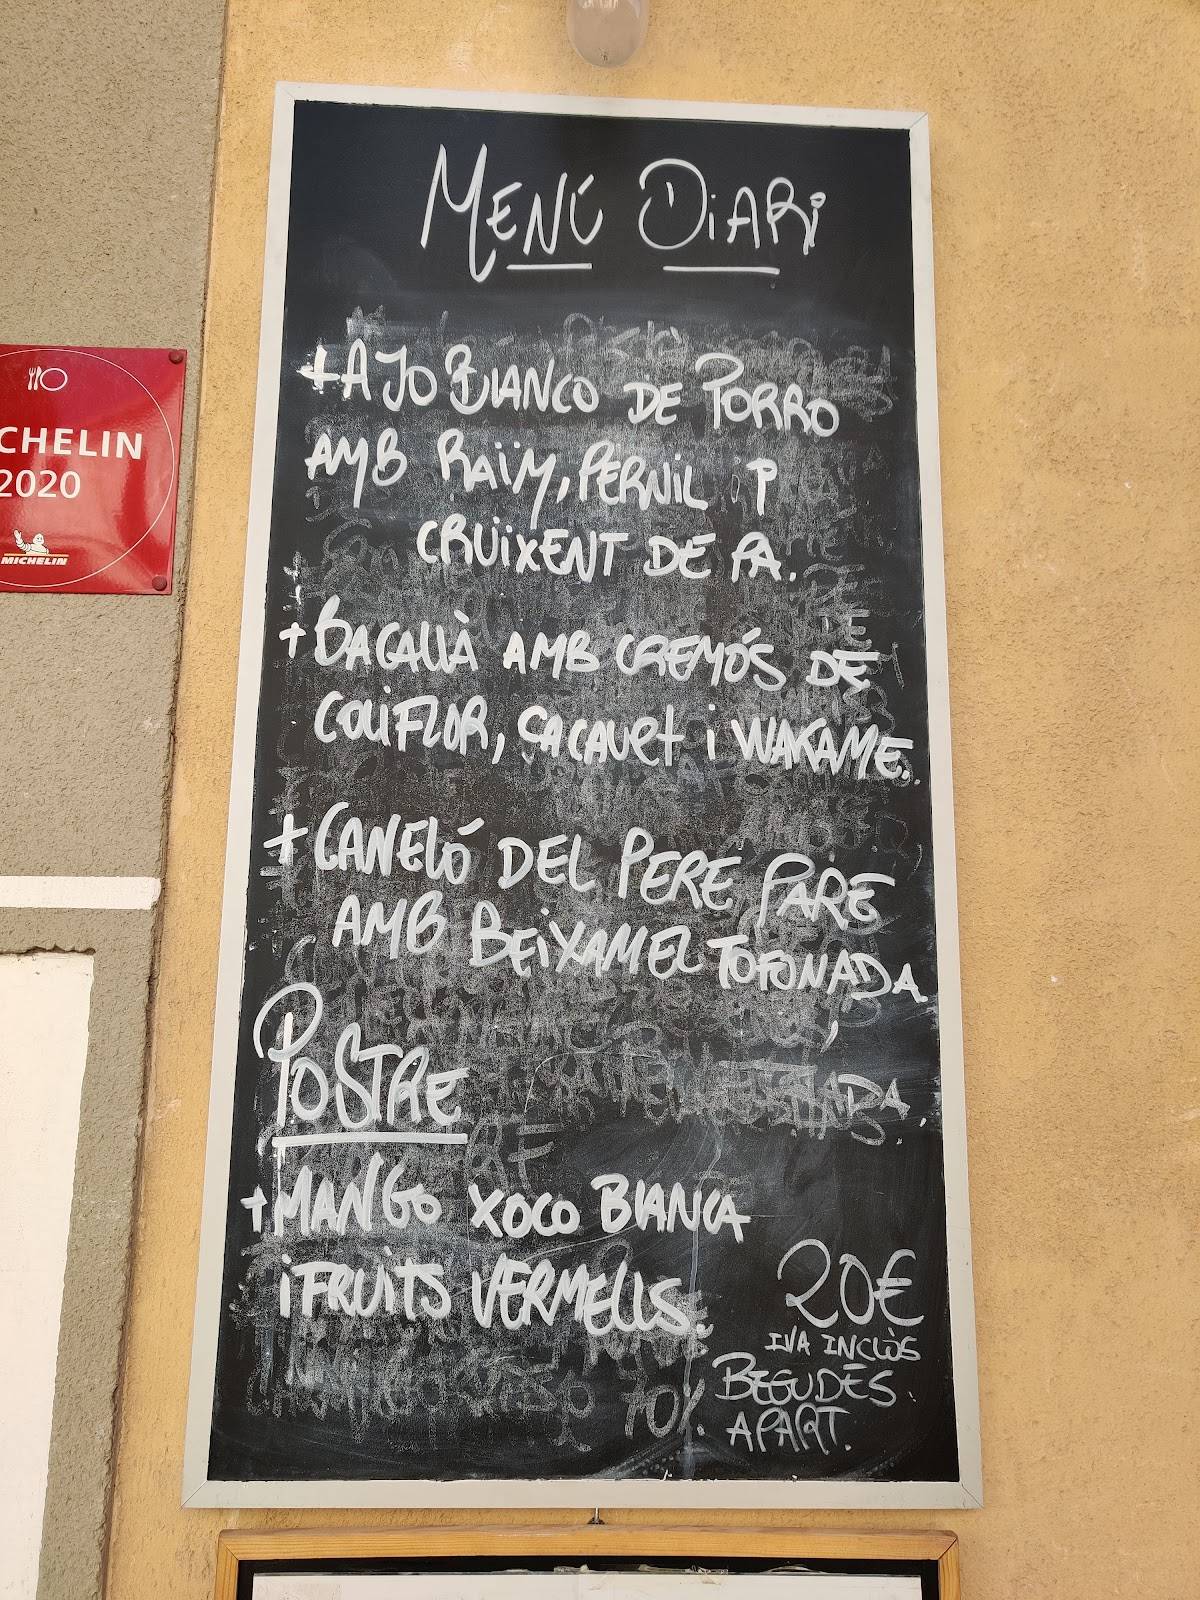 MENÚ DIARI
+ AJO BIANCO DE PORRO
AMB RAÏM, PERNIL i
CRUÏXENT DE PA.
+ BACALLÀ AMB CREMÓS DE
COLIFLOR, CACAUET i WAKAME.
+ CANELÓ DEL PERE PARE
AMB BEIXAMEL TOFONADA
POSTRE
+ MANGO XOCO BLANCA
i FRUITS VERMELLS.
20€
IVA INCLÒS
BEGUDES
APART.
CHELIN
2020
MICHELIN